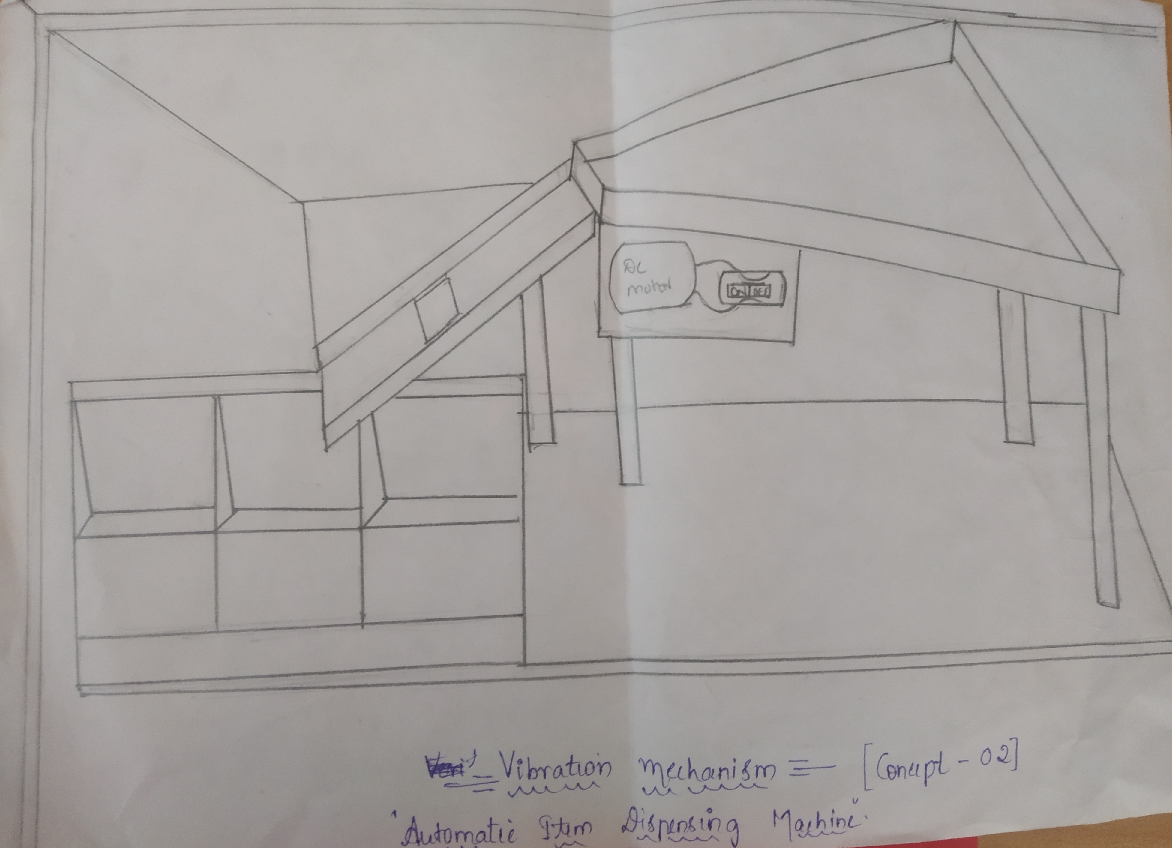 DC
motor
ON OFF
Vibration mechanism [Concept - 02]
"Automatic Item Dispensing Machine".